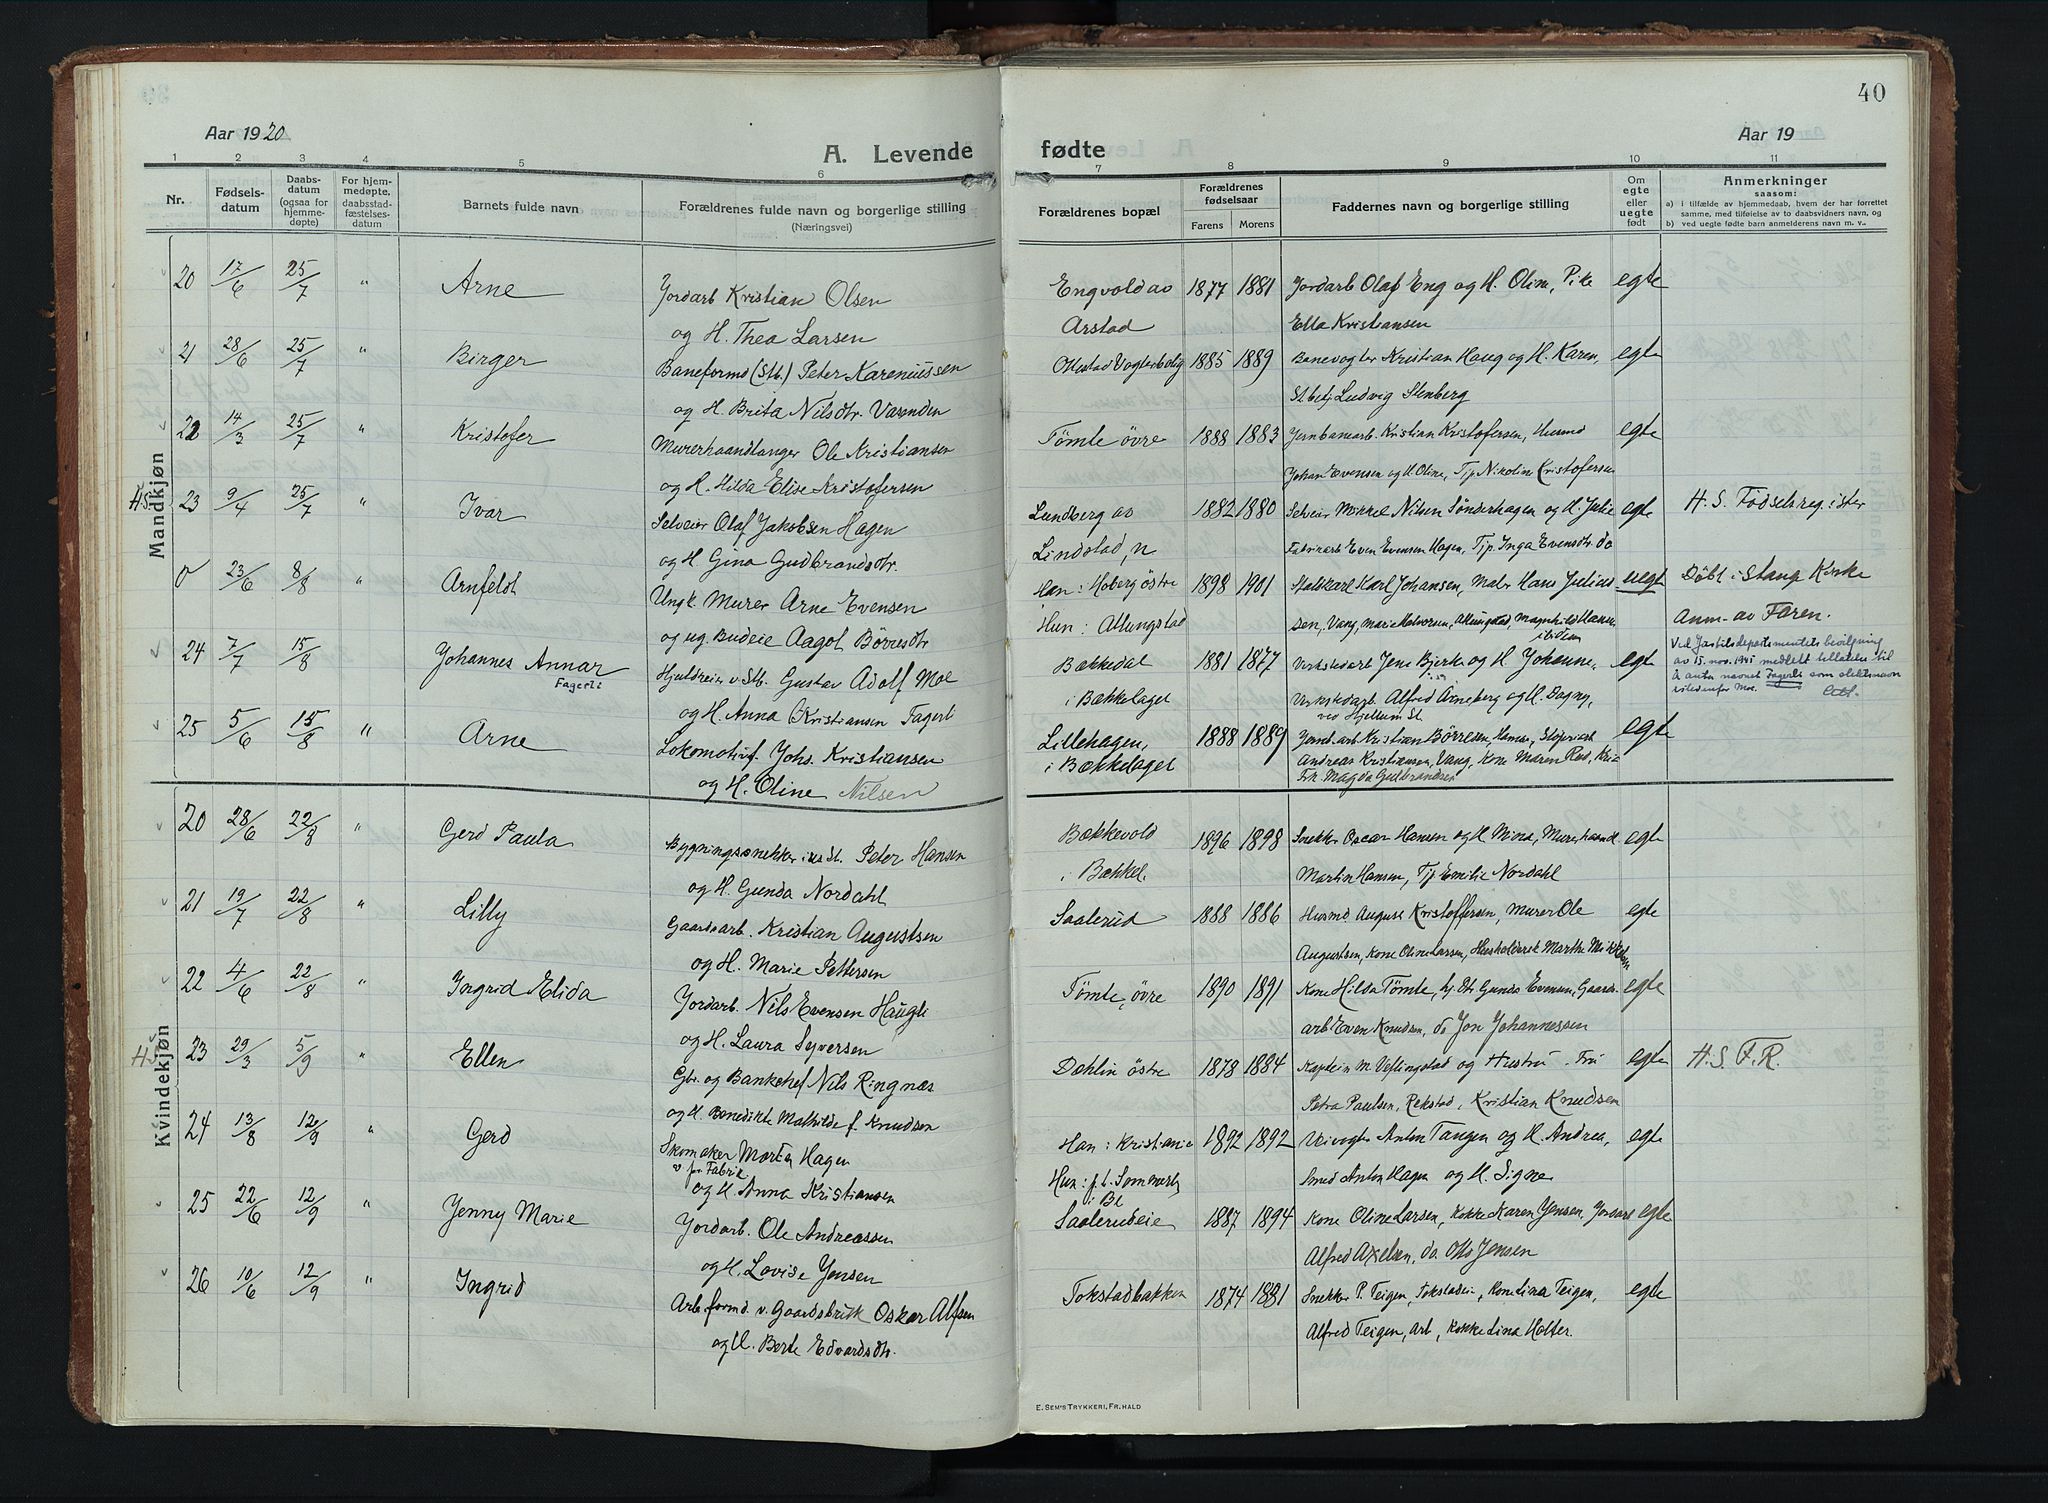 40
Aar 1920
A. Levende fødte
Aar 19
1 2 3 4 5 6 7 8 9 10 11
Nr.
Fødsels-
datum
Daabs-
datum
(ogsaa for
hjemme-
døpte)
For hjem-
medøpte,
daabsstad-
fæstelses-
datum
Barnets fulde navn
Forældrenes fulde navn og borgerlige stilling
(Næringsvei)
Forældrenes bopæl
Forældrenes
fødselsaar
Farens Morens
Faddernes navn og borgerlige stilling
Om
egte
eller
uegte
født
Anmerkninger
saasom:
a) i tilfælde av hjemmedaab, hvem der har forrettet
samme, med tilføielse av to daabsvidners navn, og
b) ved uegte fødte barn anmelderens navn m. v..
Mandkjøn
20 17/6 25/7 " Arne Jordarb Kristian Olsen Engvold av 1877 1881 Jordarb Olaf Eng og H. Oline, Pike egte
og H. Thea Larsen Arstad Ella Kristiansen
21 28/6 25/7 " Birger Baneformd (Stb.) Peter Kareniussen Ottestad Vogterbolig 1885 1889 Banevogter Kristian Haug og H. Karen, egte
og H. Brita Nilsdtr. Vasenden Stbetj Ludvig Stenberg
22 14/3 25/7 " Kristofer Murerhaandlanger Ole Kristiansen Tömte övre 1888 1883 Jernbanearb. Kristian Kristofersen, Husmd egte
og H. Hilda Elise Kristofersen Johan Evensen og H Oline, Tjp. Nikolin Kristofersen
H.S. 23 9/4 25/7 " Ivar Selveier Olaf Jakobsen Hagen Lundberg av 1882 1880 Selveier Mikkel Nilsen Sønderhagen og H. Julie egte H. S. Fødselsregister
og H. Gina Gudbrandsdtr. Lindstad, n Fabrikarb Even Evensen Hagen, Tjp. Inga Evensdtr. do
0 23/6 8/8 " Arnfeldt Ungk. Murer Arne Evensen Han: Hoberg östre 1898 1901 Staldkarl Karl Johansen, Maler Hans Julius uegt Döbt i Stange Kirke
og ug. Budeie Aagot Börresdtr Hun: Allungstad sen, Vang, Marie Halvorsen, Allungstad, Magnhild Hansen Anm. av Faren.
istdem
24 7/7 15/8 Johannes Annar Hjuldreier v. Stb. Gustav Adolf Moe Bækkedal 1881 1877 Verkstedarb Jens Bjerke og H. Johanne, egte
Fagerli
og H. Anna Kristiansen Fagerli i Bækkelaget Verkstedarb. Alfred Arneberg og H. Dagny,
ved Hjellum St.
Ved Justitsdepartementets bevilgning
av 15. nov. 1945 meddelt tillatelse til
å anta navnet Fagerli som slektsnavn
istedenfor Moe.
25 5/6 15/8 " Arne Lokomotivf. Johs. Kristiansen Lillehagen, 1888 1889 Jernb.arb Kristian Börresen, Hamar, Støperiarb egte
og H. Oline Nilsen i Bækkelaget Andreas Kristiansen, Vang, Kone Maren Rud,
Frk Magda Gudbrandsen
Kvindekjøn
20 28/6 22/8 " Gerd Paula Bygningssnekker Peter Hansen Bækkevold 1896 1898 Snekker Oscar Hansen og H Mina, Murerhaandl. egte
og H. Gunda Nordahl i Bækkel. Martin Hansen, Tjp Emilie Nordahl
21 19/7 22/8 " Lilly Gaardsarb. Kristian Augustsen Saalerud 1888 1886 Husmd. August Kristoffersen, Murer Ole egte
og H. Marie Pettersen Augustsen, Kone Oline Larsen, Husholderske Marthe Mikkelsen
22 4/6 22/8 " Ingrid Elida Jordarb. Nils Evensen Haugli Tömte, övre 1890 1891 Kone Hilda Tömte, hj. Dtr Gunda Evensen, Gaards- egte
og H. Laura Syversen arb Even Knudsen, do Jon Johannessen
H.S. 23 29/3 5/9 " Ellen Gbr. og Bankchef Nils Ringnæs Dæhlin östre 1878 1884 Kaptein M. Veflingstad og Hustru. Fru egte H. S. F. R.
og H. Benedikte Mathilde f. Knudsen Petra Paulsen, Rekstad, Kristian Knudsen
24 13/8 12/9 " Gerd Skomaker Morten Hagen Han: Kristiania 1892 1892 Veivogter Anton Tangen og H. Andrea, egte
og H. Anna Kristiansen Hun: f.t. Sommerly Smed Anton Hagen og H. Signe
i Bl
25 22/6 12/9 " Jenny Marie Jordarb. Ole Andreassen Saalerudeie 1887 1894 Kone Oline Larsen, Kokke Karen Jensen, Jordarb egte
og H. Lovise Jensen Alfred Axelsen, do. Otto Jensen
26 10/6 12/9 " Ingrid Arb formd v. Gaardsbruk Oskar Alfsen Tokstadbakken 1874 1881 Snekker P. Teigen, Tokstadeie, Kone Lina Teigen, egte
og H. Berte Edvardsdtr. Alfred Teigen, Arb, Kokke Lina Holter.
E. SEM'S TRYKKERI, FR. HALD